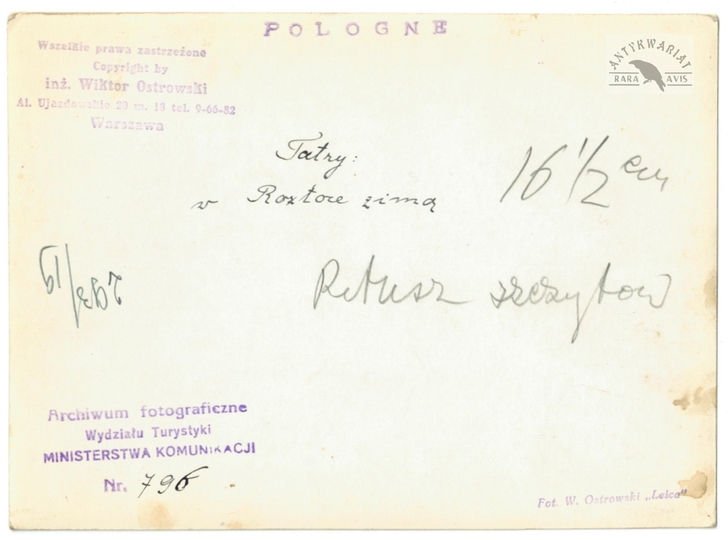 POLOGNE
Wszelkie prawa zastrzeżone
Copyright by
inż. Wiktor Ostrowski
Al. Ujazdowskie 20 m. 10 tel. 9-66-82
Warszawa
ANTYKWARIAT
RARA AVIS
Tatry:
w Roztoce zimą
16 1/2 cm
Retusz szczytów
Archiwum fotograficzne
Wydziału Turystyki
MINISTERSTWA KOMUNIKACJI
Nr. 796
Fot. W. Ostrowski „Leica"